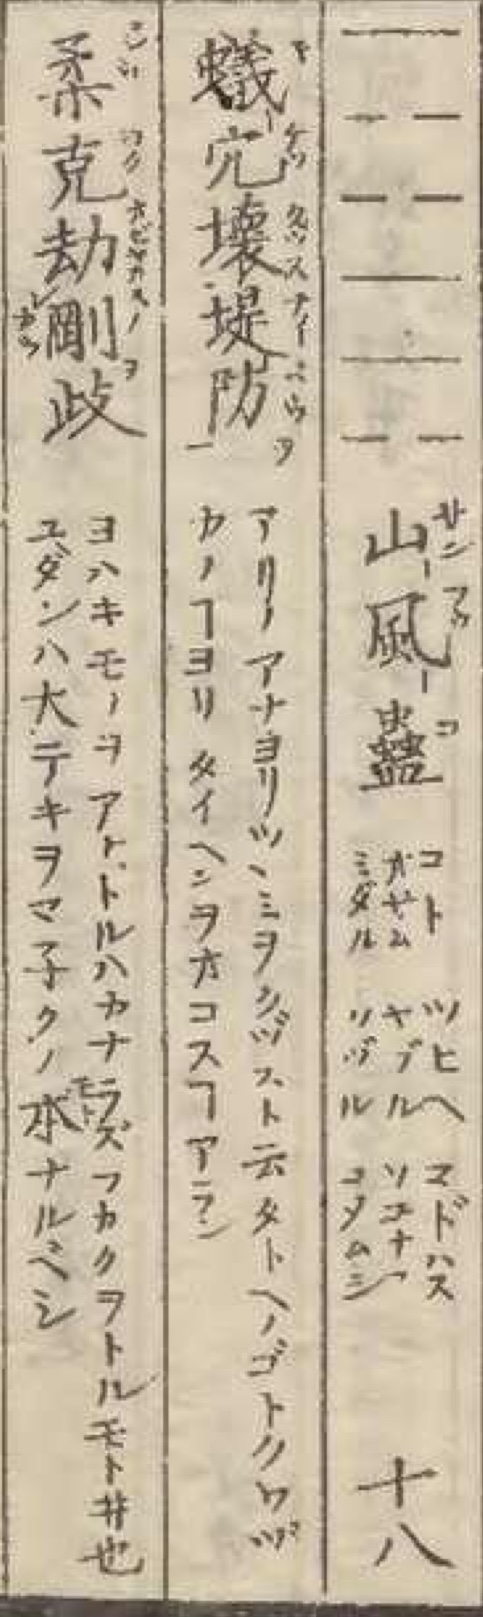 山風蠱
サンフウコ
コト ツヒヘ マドハス
オサム ヤブル ソコナフ
ミダル
十八
蟻穴壊堤防
ギケツクヅステイバウヲ
アリノアナヨリツヽミヲクヅスト云タトヘノゴトクワヅ
カノヿヨリタイヘンヲオコスヿアラン
柔克劫剛歧
ヨクオビヤカス
ヨハキモノヲアナドルハカナラズフカクヲトルモト井也
ユダンハ大テキヲマ子クノ本ナルベシ
モト